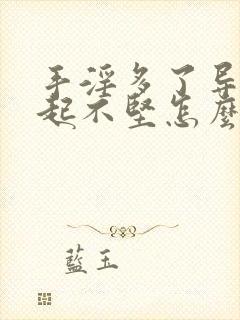 手淫多了导
起不坚怎麼
藍玉